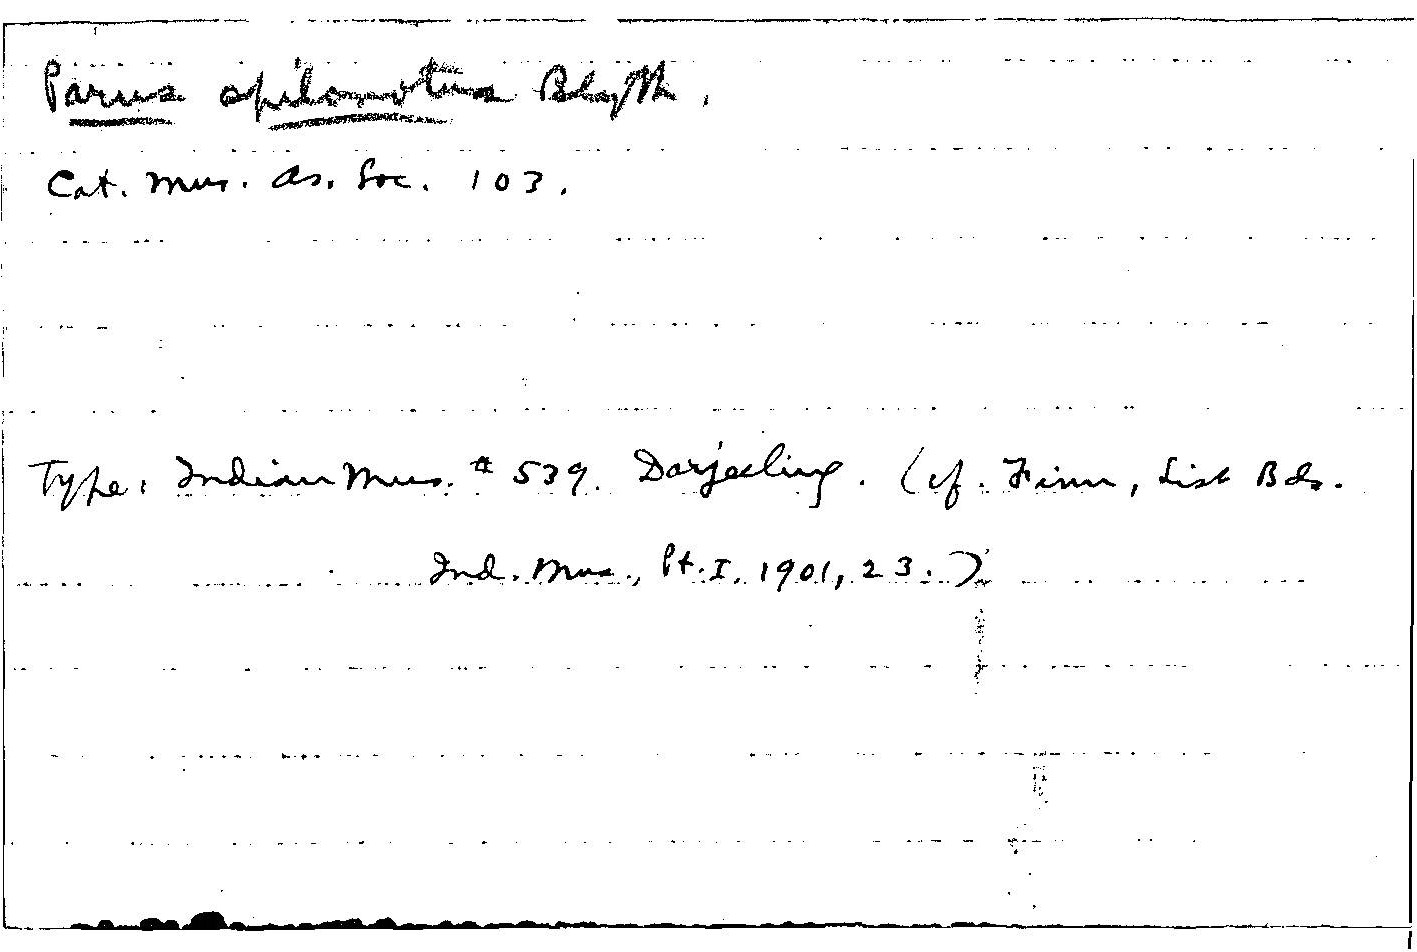 Parus spilonotus Blyth.
Cat. Mus. As. Soc. 103.
Type: Indian Mus. # 539. Darjeeling. (cf. Finn, List Bds.
Ind. Mus., Pt. I, 1901, 23.)